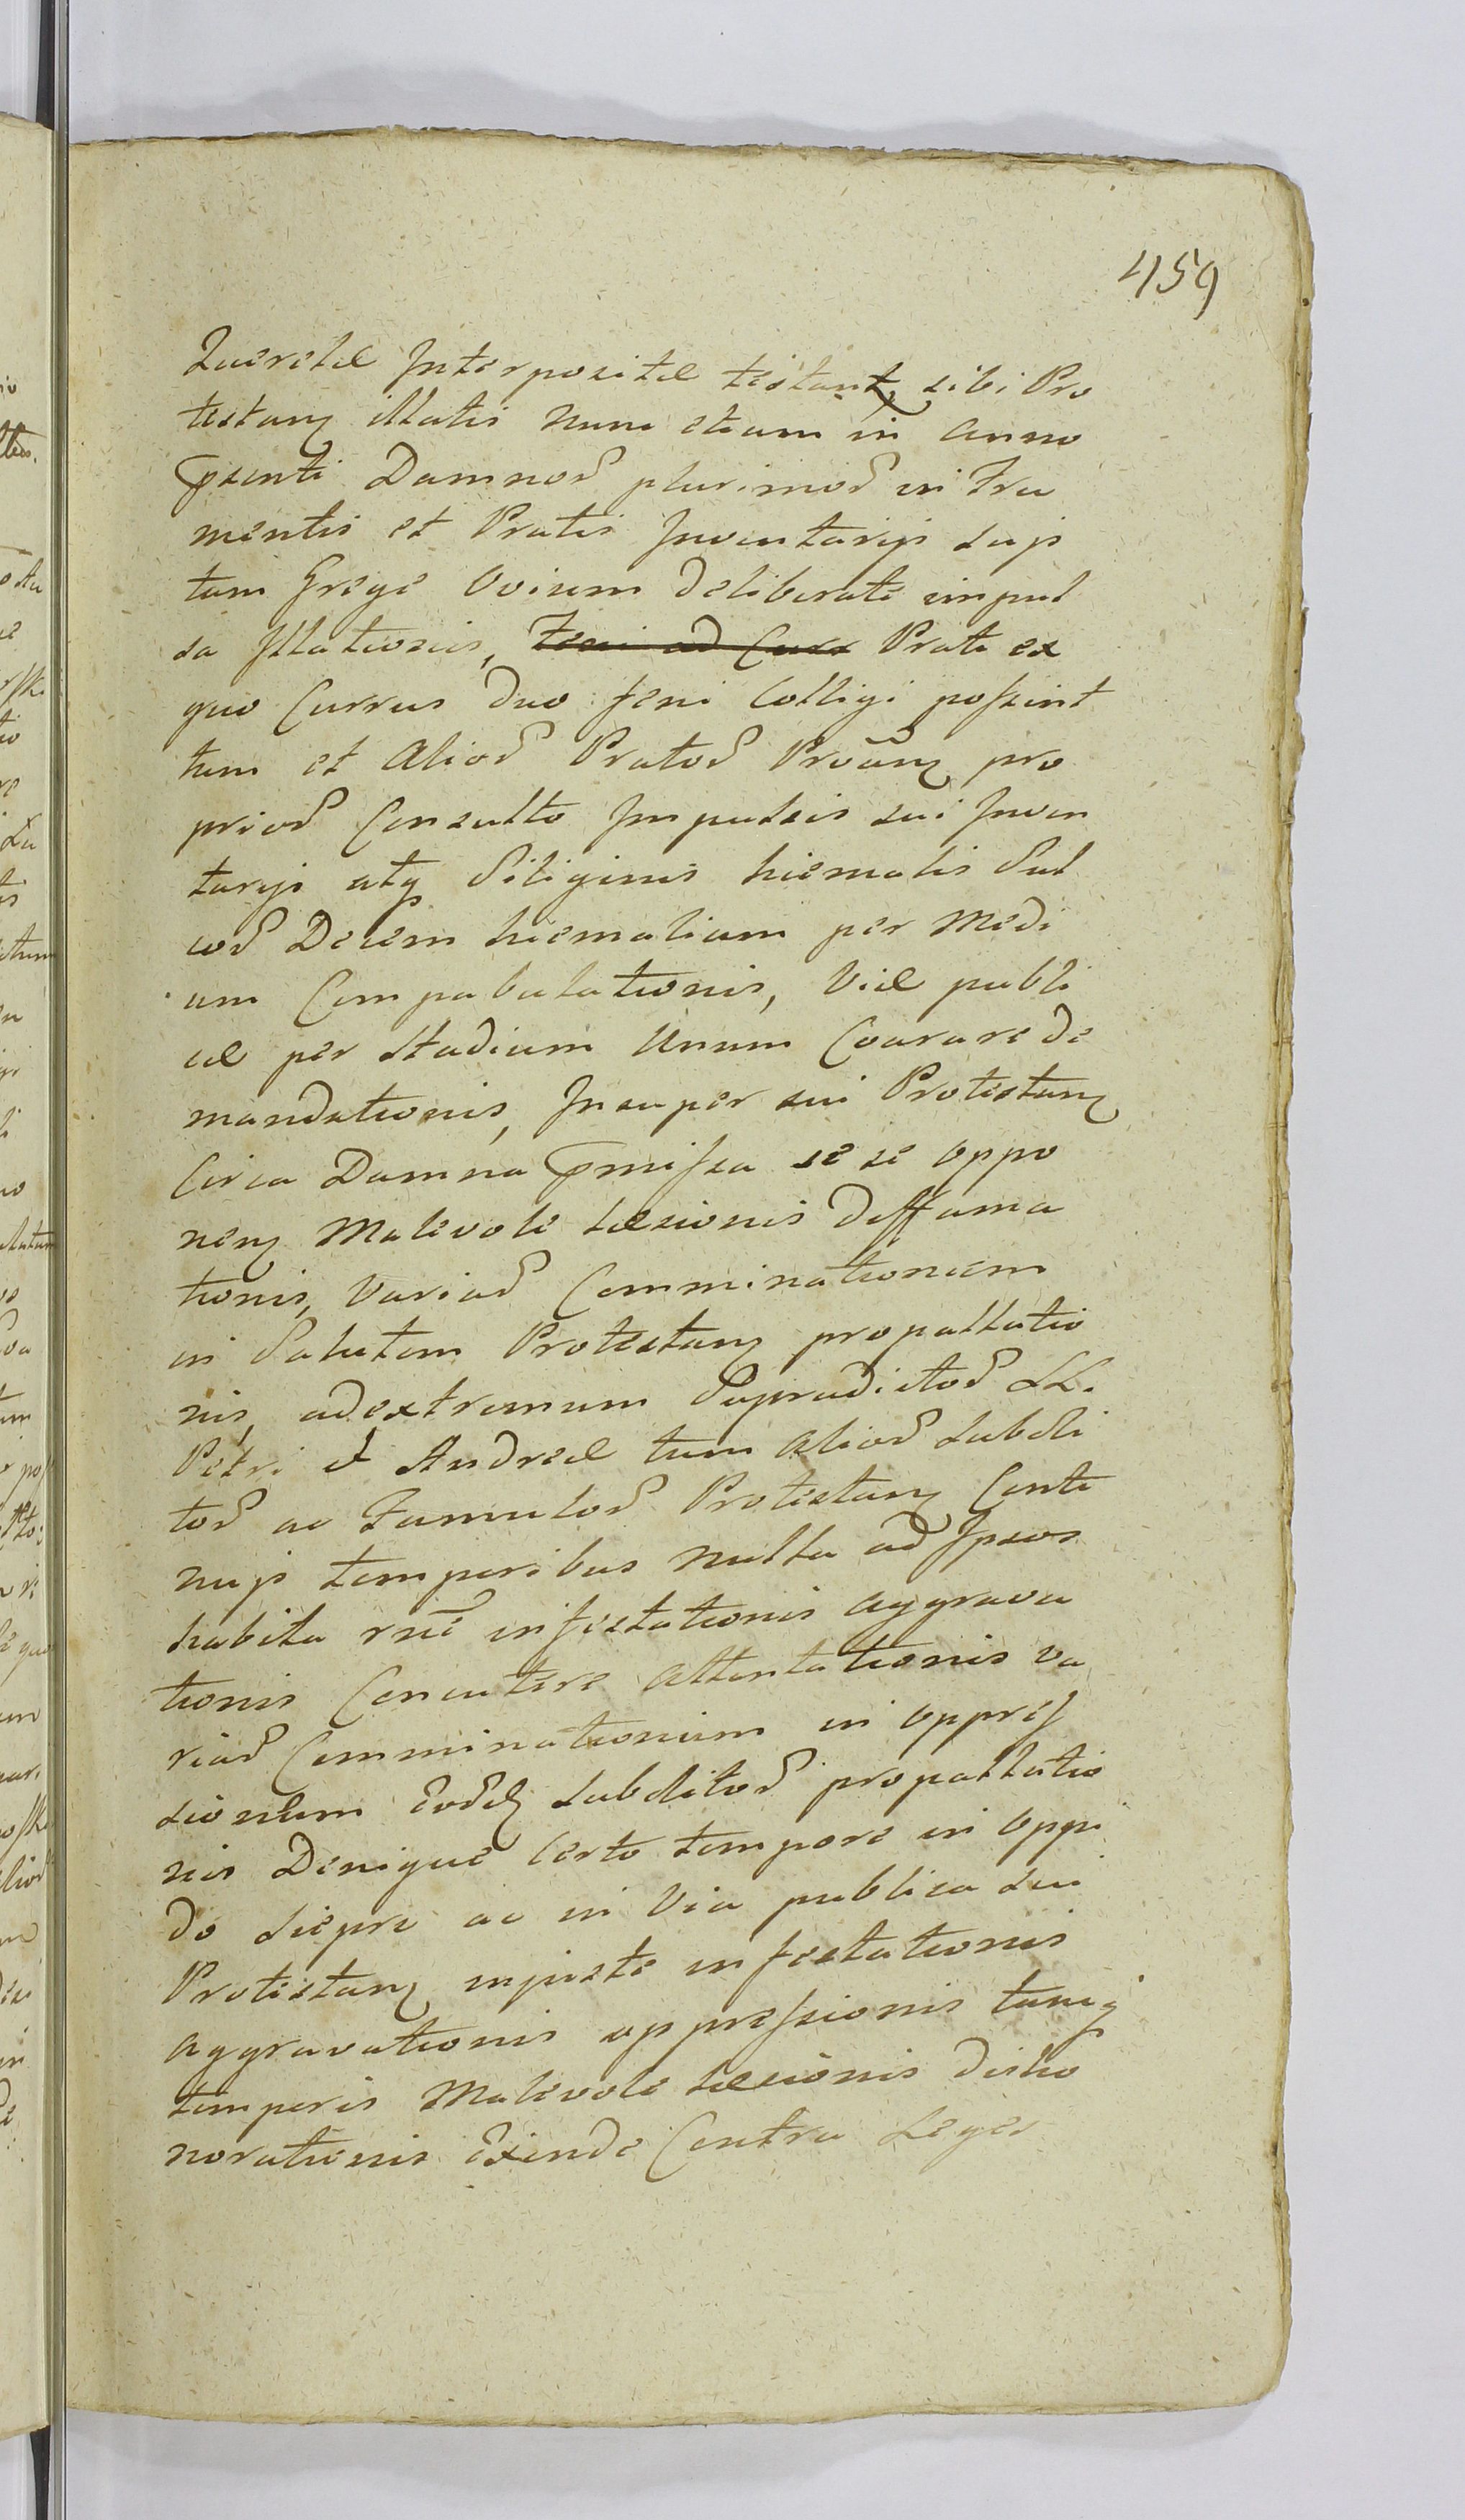 459
Querelæ Interpositæ testant, sibi Pro
testanʒ illatis nunc etiam in anno
pſenti Damnoꝝ plurimoꝝ in Fru
mentis et Pratis Inventarijs sujs
tam Grege Ovium deliberate impul
sa Illationis, Feni ad Curr Prati ex
quo Currus duo feni Colligi poſsint
tum et Alioꝝ Pratoꝝ Prõanʒ pro
prioꝝ Consulto Impulsis sui Inven
tarijs atq Siliginis hiemalis Sul
coꝝ Decem hiematium per Medi
um Compabulationis, Viæ publi
cæ per Stadium Unum Coarare de
mandationis, Insuper sui Protestanʒ
Circa Damna pmiſsa se se oppo
nenʒ Malevole Læsionis deffama
tionis, Variaꝝ Comminationum
in Salutem Protestanʒ propallatio
nis, ad extremum Supradictoꝝ LL.
Petri et Andreæ tum alioꝝ Subdi
toꝝ ac Famuloꝝ Protestanʒ Conti
nujs temporibus nulla ad Ipsos
habita rnẽ infestationis aggrava
tionis Concutere attentationis va
riaꝝ Comminationum in oppreſ
sionem Eoꝝdʒ Subditoꝝ propallatio
nis Denique Certo tempore in Oppi
do Siepra ac in Via publica sui
Protestanʒ injuste infestationis
aggravationis oppreſsionis tumq
temporis Malevole Læsionis disho
norationis Exinde Contra Leges